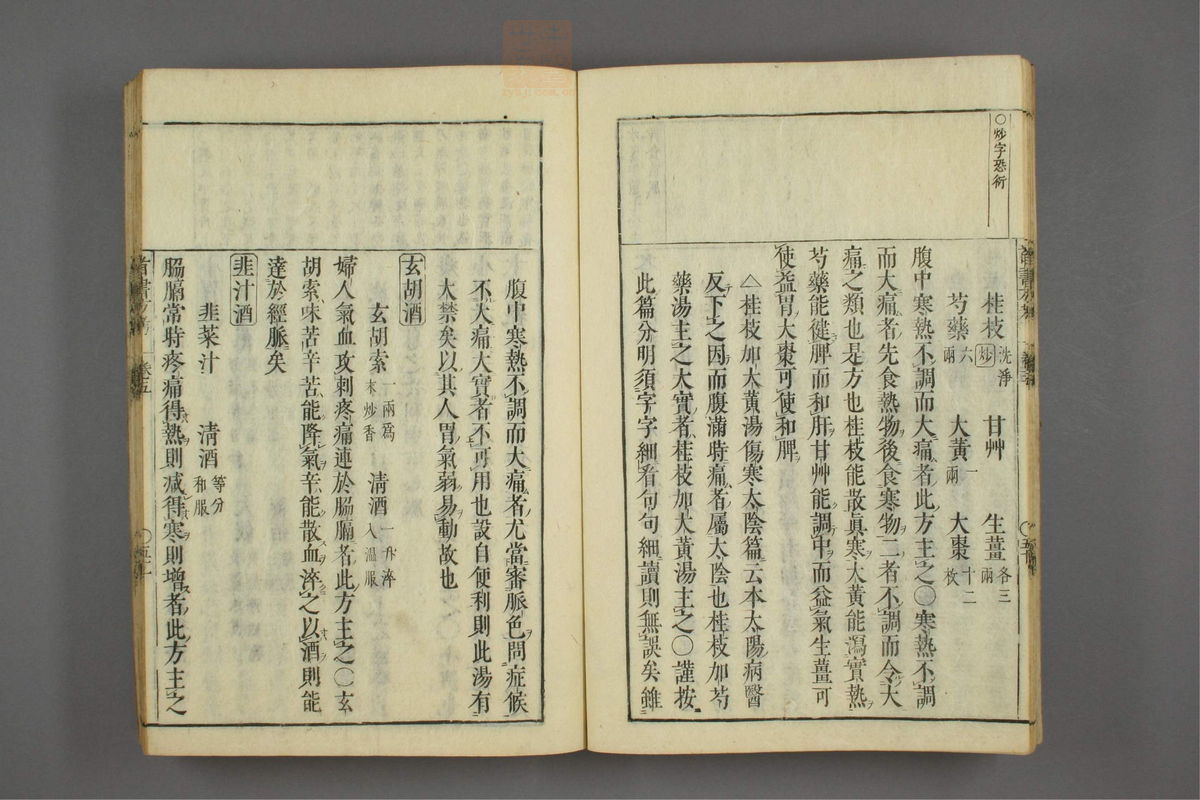 ○炒字恐衍
桂枝 洗淨炒 甘艸 生薑 各三兩
芍藥 六兩 大黃 一兩 大棗 十二枚
腹中寒熱不調而大痛者此方主之○寒熱不調
而大痛者先食熱物後食寒物二者不調而令大
痛之類也是方也桂枝能散真寒大黃能瀉實熱
芍藥能健脾而和肝甘艸能調中而益氣生薑可
使益胃大棗可使和脾
△桂枝加大黃湯傷寒太陰篇云本太陽病醫
反下之因而腹滿時痛者屬太陰也桂枝加芍
藥湯主之大實者桂枝加大黃湯主之○謹按
此篇分明須字字細看句句細讀則無誤矣雖
腹中寒熱不調而大痛者尤當審脈色問症候
不大痛大實者不可用也設自便利則此湯有
大禁矣以其人胃氣弱易動故也
玄胡酒
玄胡索 一兩爲末炒香 清酒 一升淬入溫服
婦人氣血攻刺疼痛連於脇膈者此方主之○玄
胡索味苦辛苦能降氣辛能散血淬之以酒則能
達於經脈矣
韭汁酒
韭菜汁 清酒 等分和服
脇膈常時疼痛得熱則減得寒則增者此方主之
卷五